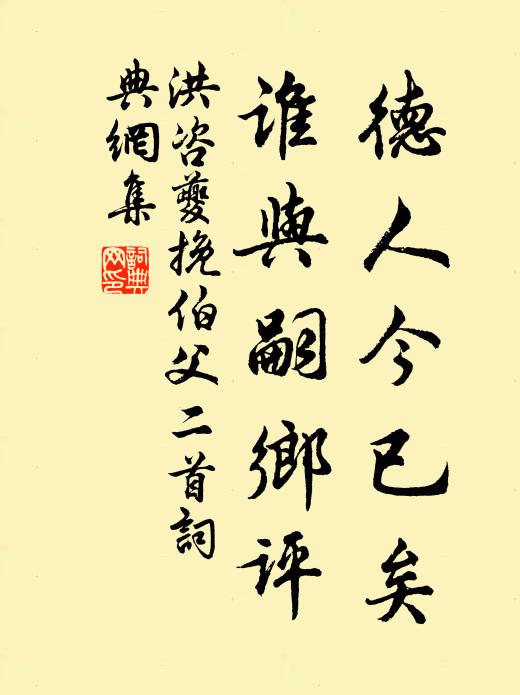 德人今已矣
誰與嗣鄉評
洪咨夔挽伯父二首詞
典網集
詞典
网印